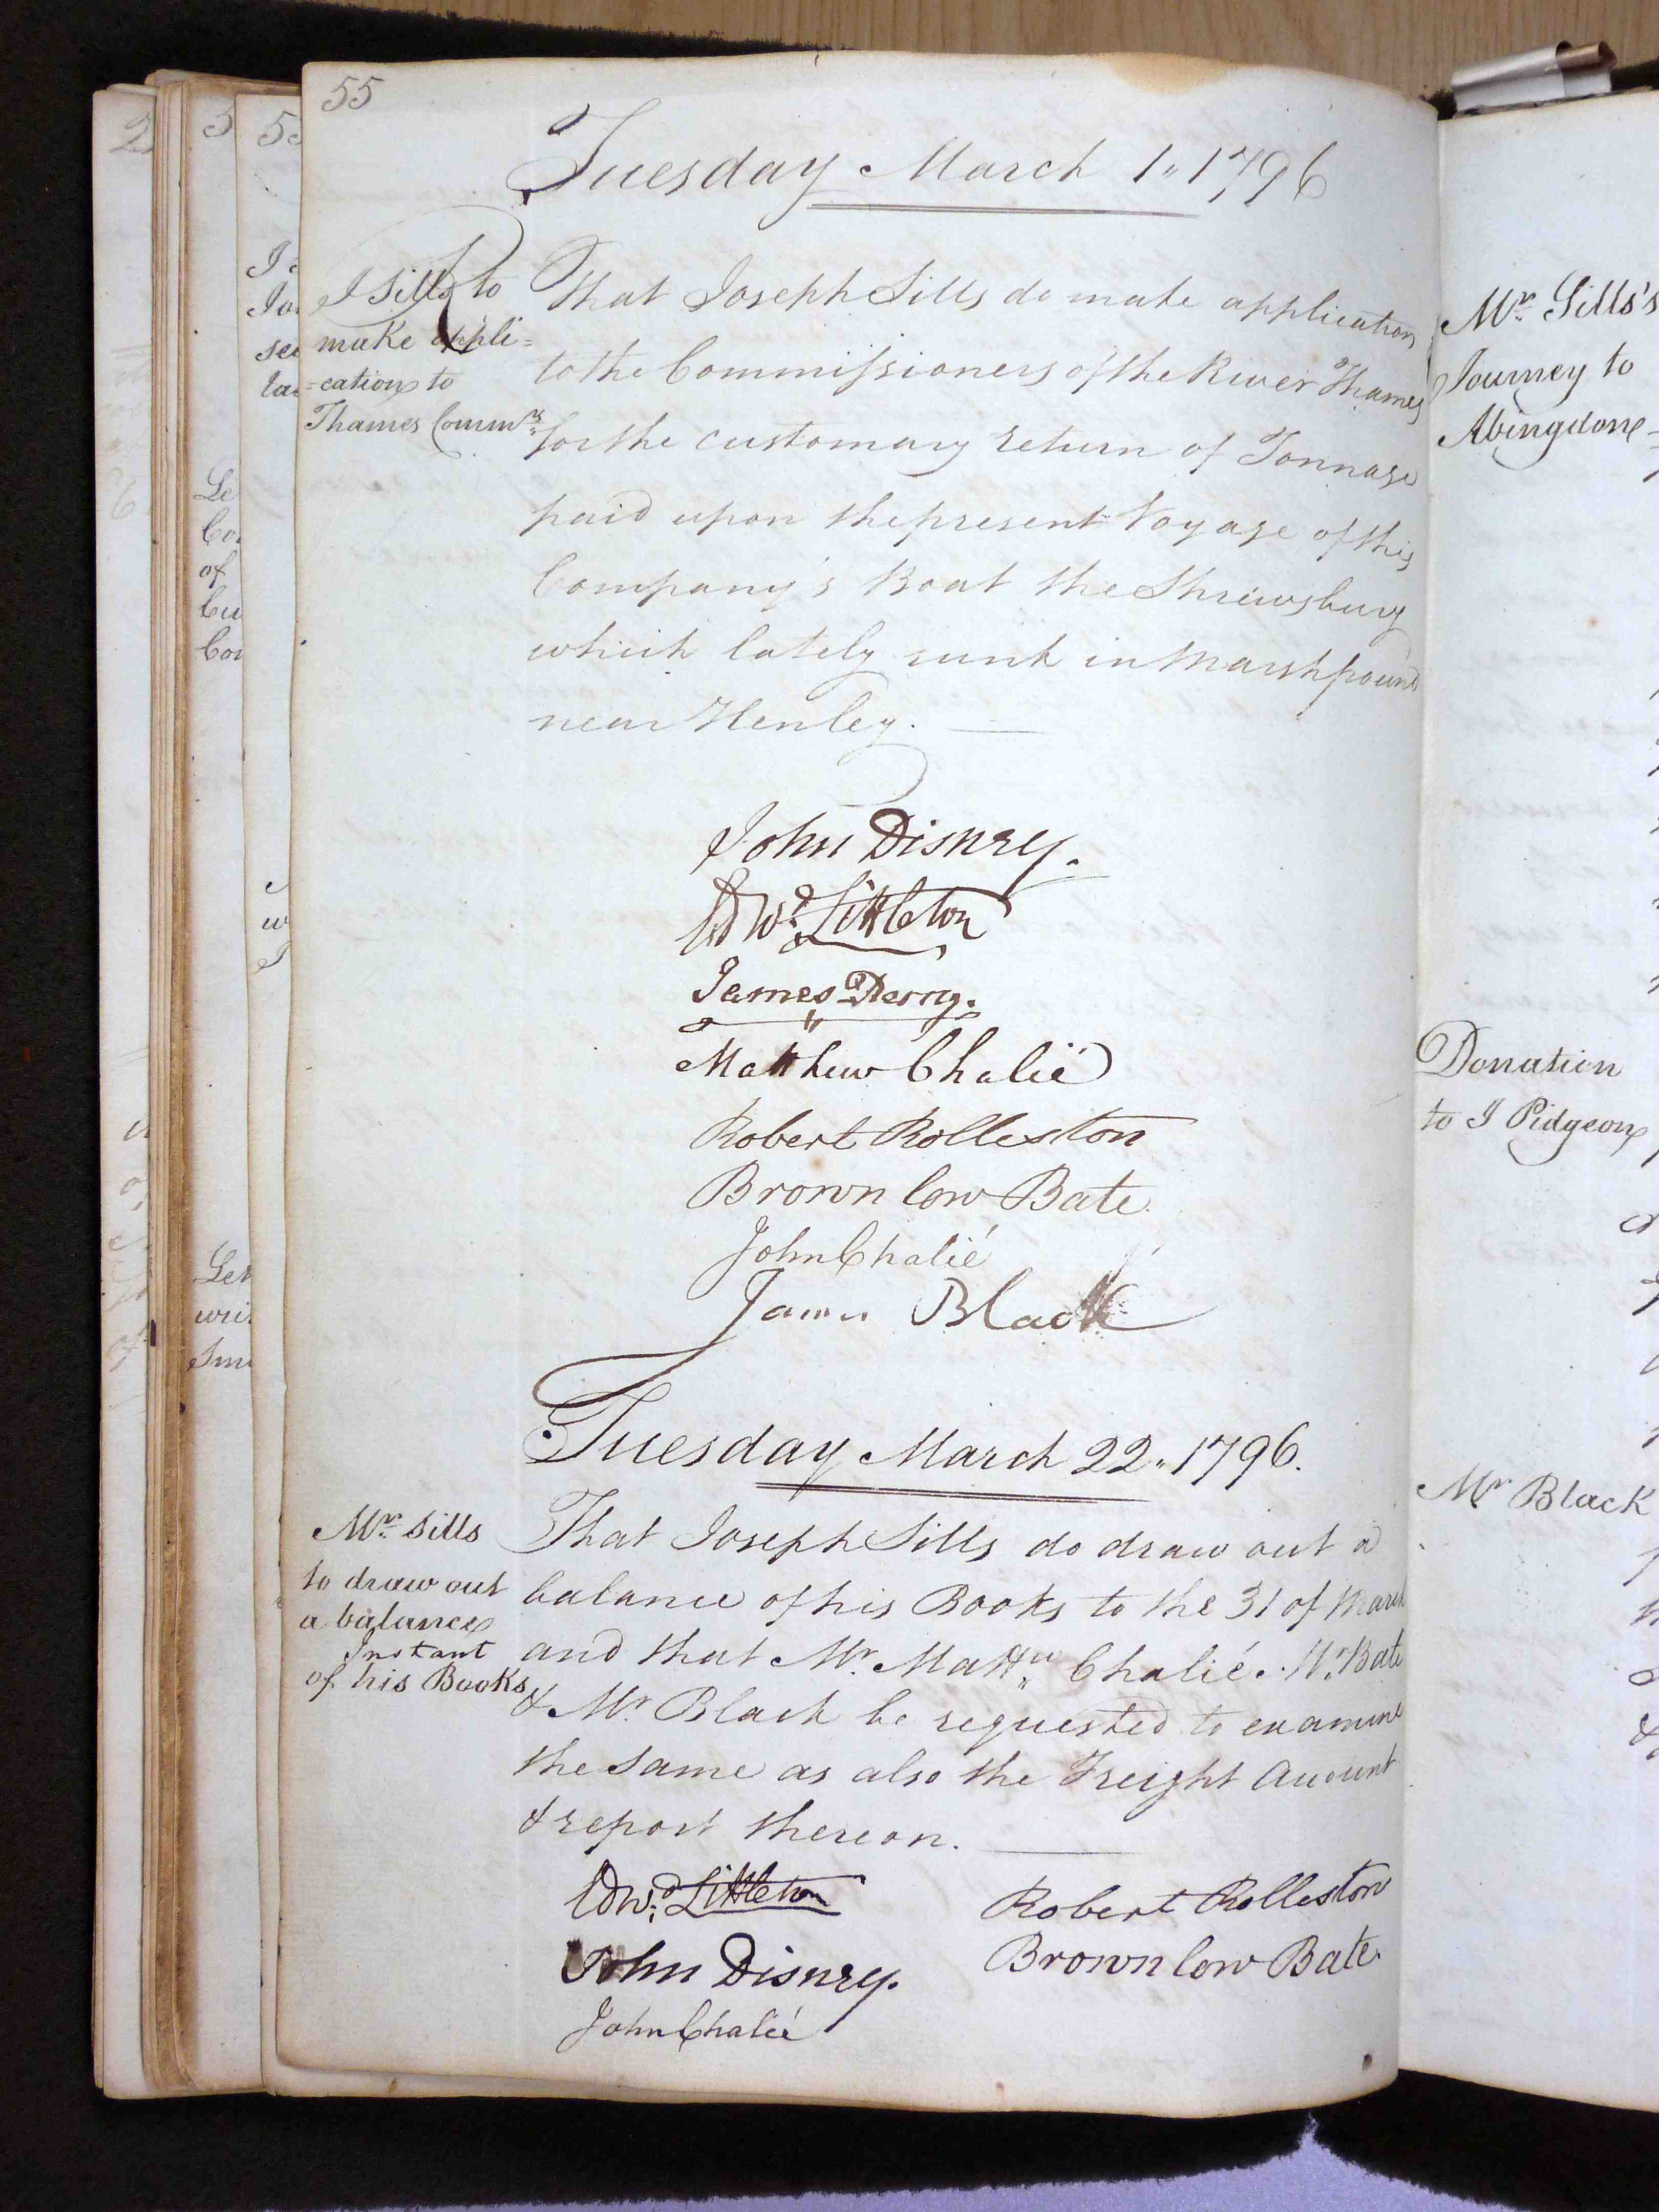 55
Tuesday March 1,, 1796
J Sills to
make appli=
=cation to
Thames Commrs.
That Joseph Sills do make application
to the Commissioners of the River Thames
for the customary return of Tonnage
paid upon the present Voyage of this
Company's Boat the Shrewsbury
which lately sunk in Marsh pound
near Henley.
John Disney.
Edwd. Littleton
James Derry.
Matthew Chalié
Robert Rolleston
Brownlow Bate
John Chalié
James Black
Tuesday March 22,, 1796.
Mr. Sills
to draw out
a balance
of his Books
That Joseph Sills do draw out a
balance of his Books to the 31 of March
Instant and that Mr. Mattw. Chalié. Mr. Bate
& Mr. Black be requested to examine
the same as also the Freight Account
& report thereon.
Edwd. Littleton
John Disney.
John Chalié
Robert Rolleston
Brownlow Bate
Mr. Sills's
Journey to
Abingdon
Donation
to J Pidgeon
Mr Black